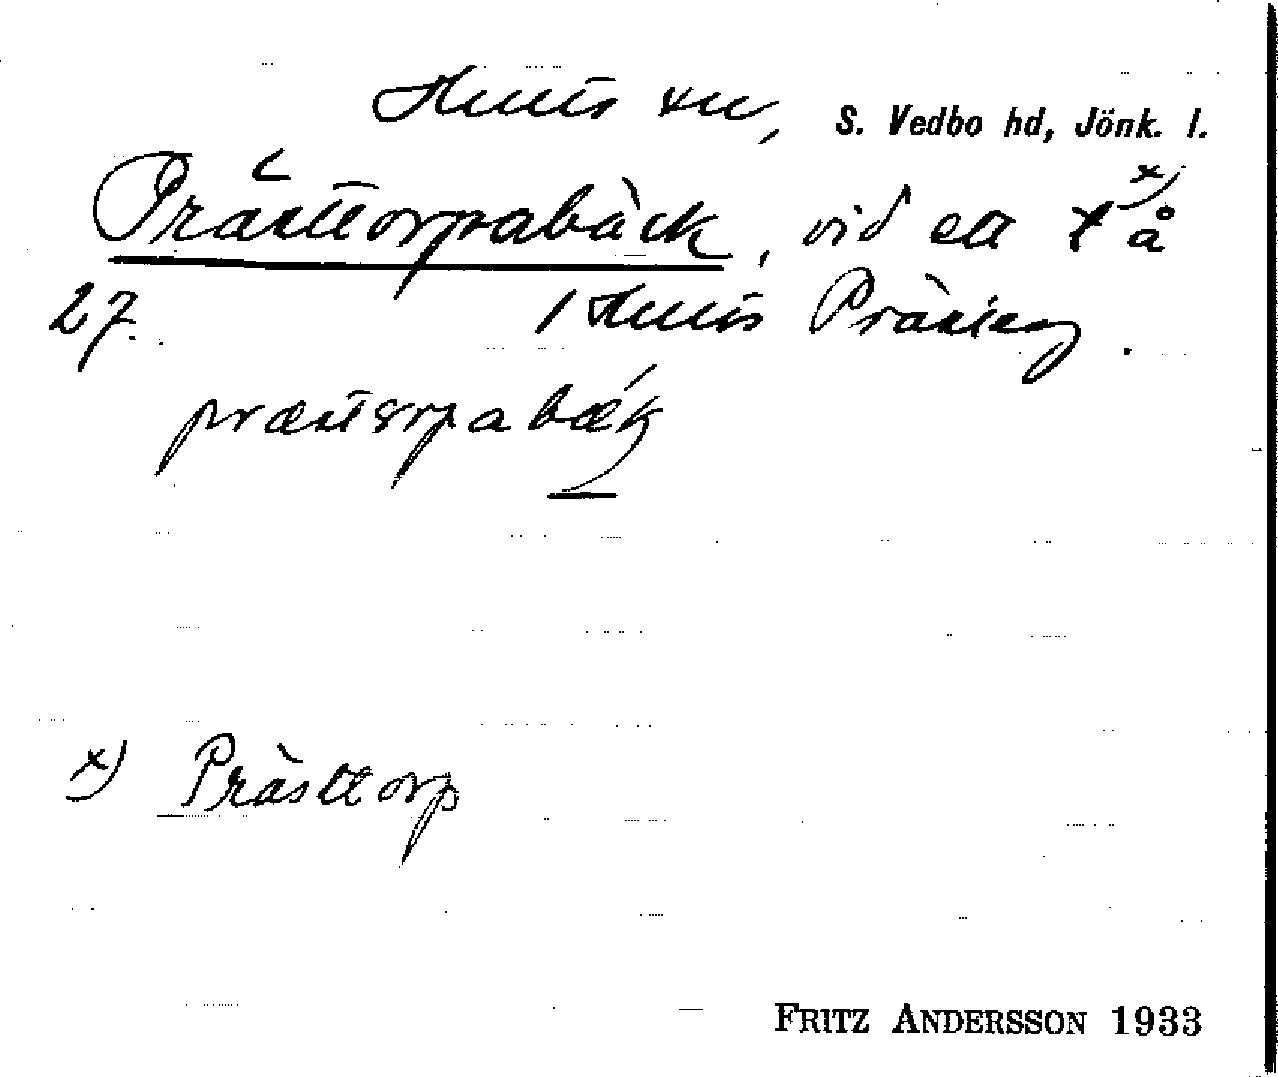 Hults sn, S. Vedbo hd, Jönk. l.
Prästtorpabäck, vid ett t x) å
27. / Hults Prästäng.
præsttorpabæk
x) Prästtorp
FRITZ ANDERSSON 1933